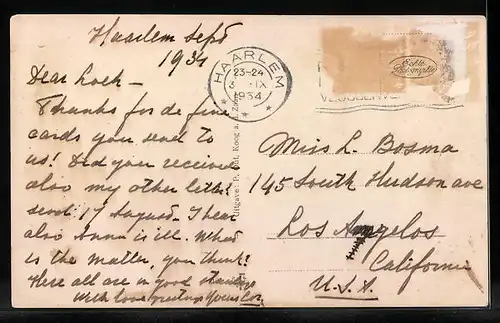 Haarlem Sept
1934
Dear Loek-
Thanks for de fine
cards you send to
us! Did you received
also my other letter
send 17 August. I hear
also Anna is ill. What
is the matter, you think?
Here all are in good
With love greetings yours Cor
HAARLEM
23-24
3 IX
1934
Echte
Photographie
Uitgave: P. Koog a. d. Zaan
Miss L. Bosma
145 South Hudson ave
Los Angelos
California
U.S.A.